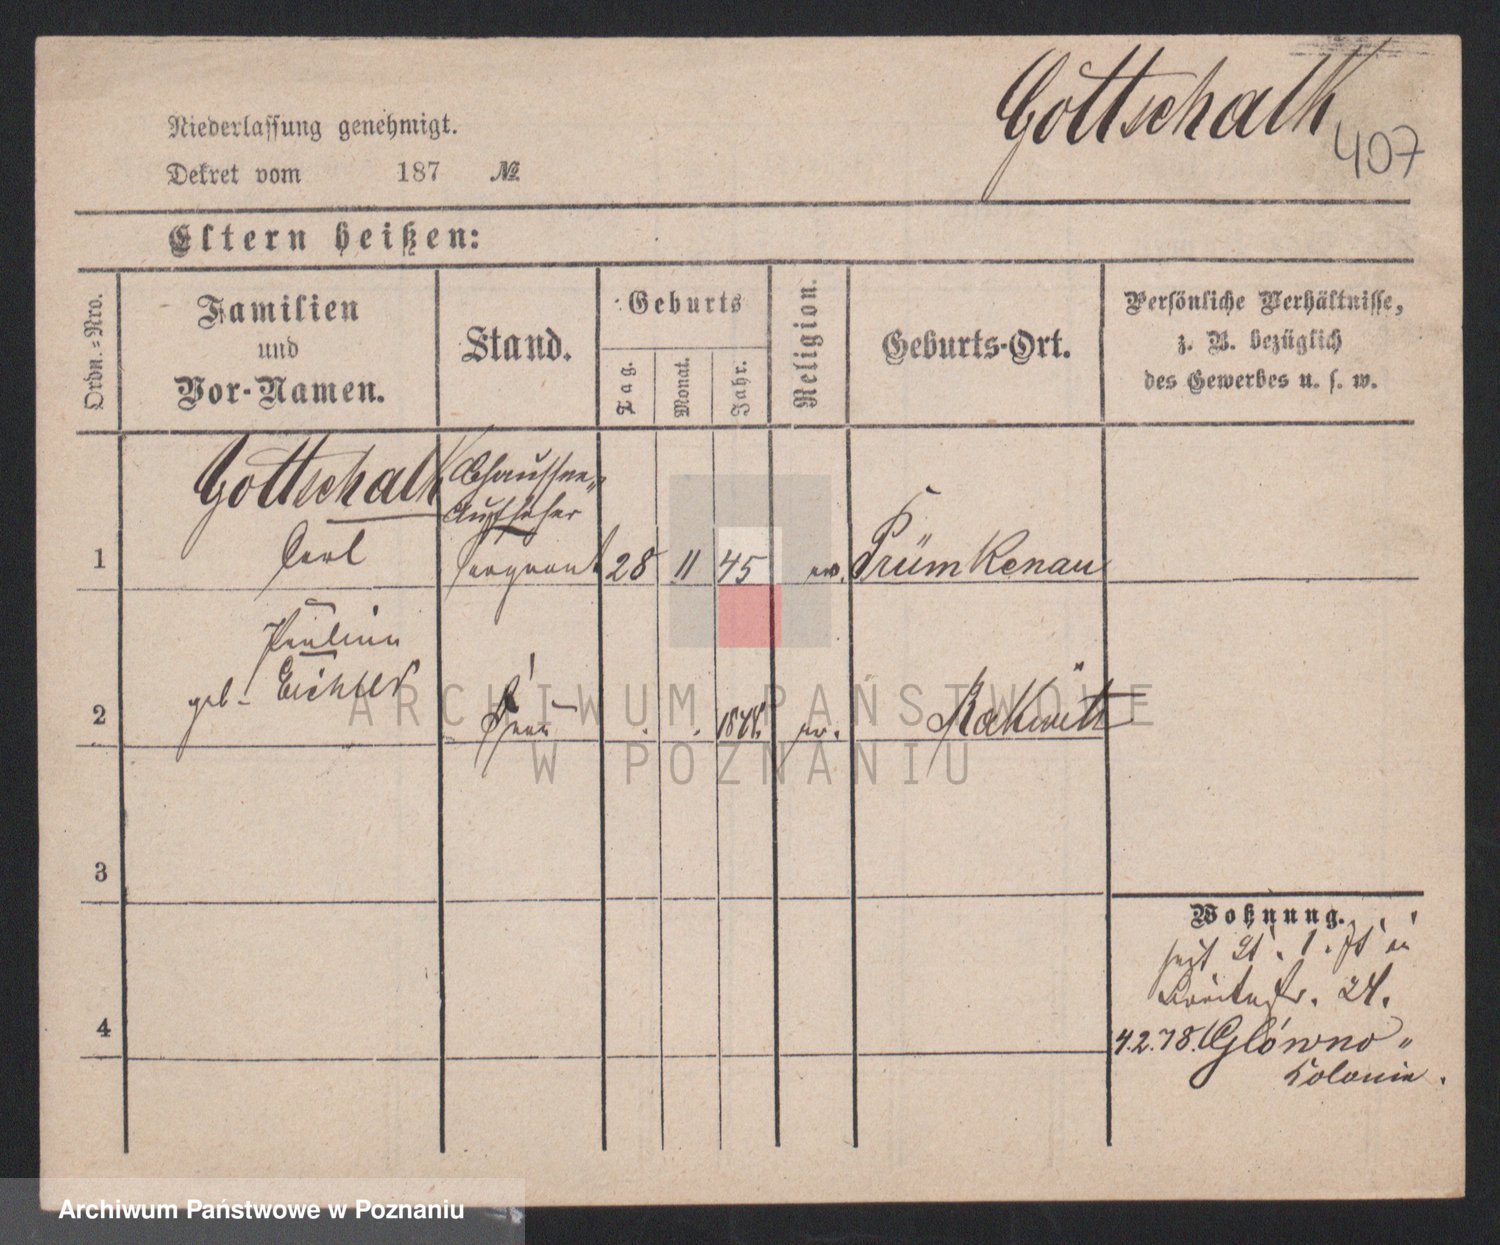 Gottschalk
407
Niederlassung genehmigt.
Dekret vom 187 №
Eltern heißen:
Ordn.-Nro.
Familien
und
Vor-Namen.
Stand.
Geburts
Tag.
Monat.
Jahr.
Religion.
Geburts-Ort.
Persönliche Verhältnisse,
z. B. bezüglich
des Gewerbes u. s. w.
Gottschalk
Carl
Chaussee-
Aufseher
Sergeant
1
28
11
45
ev.
Prümkenau
Pauline
geb. Eichler
2
Frau
ev.
Rakwitz
3
4
Wohnung.
seit
24.
4.2.78. Główno-
Colonie.
ARCHIWUM PAŃSTWOWE
W POZNANIU
Archiwum Państwowe w Poznaniu